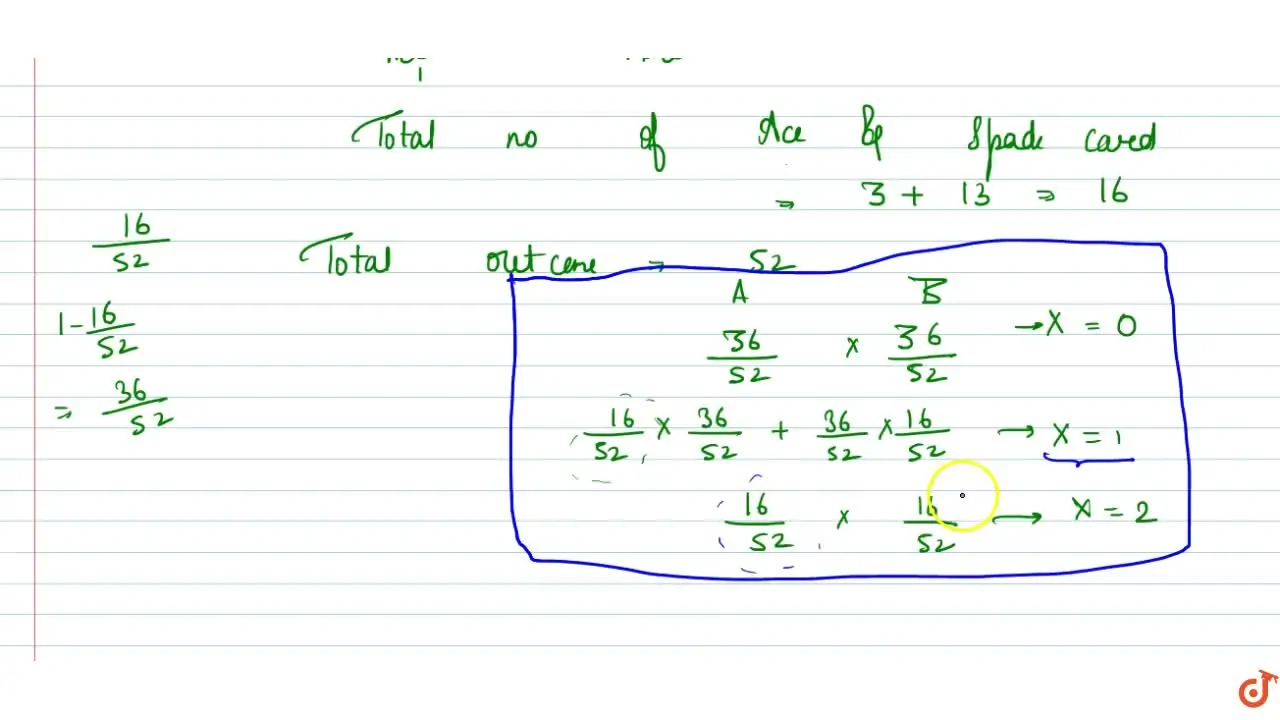 Total no of Ace & Spade cared
⇒ 3 + 13 ⇒ 16
16/52
Total outcome ⇒ 52
A B
1 - 16/52
36/52 × 36/52 → X = 0
= 36/52
16/52 × 36/52 + 36/52 × 16/52 → X = 1
16/52 × 16/52 → X = 2